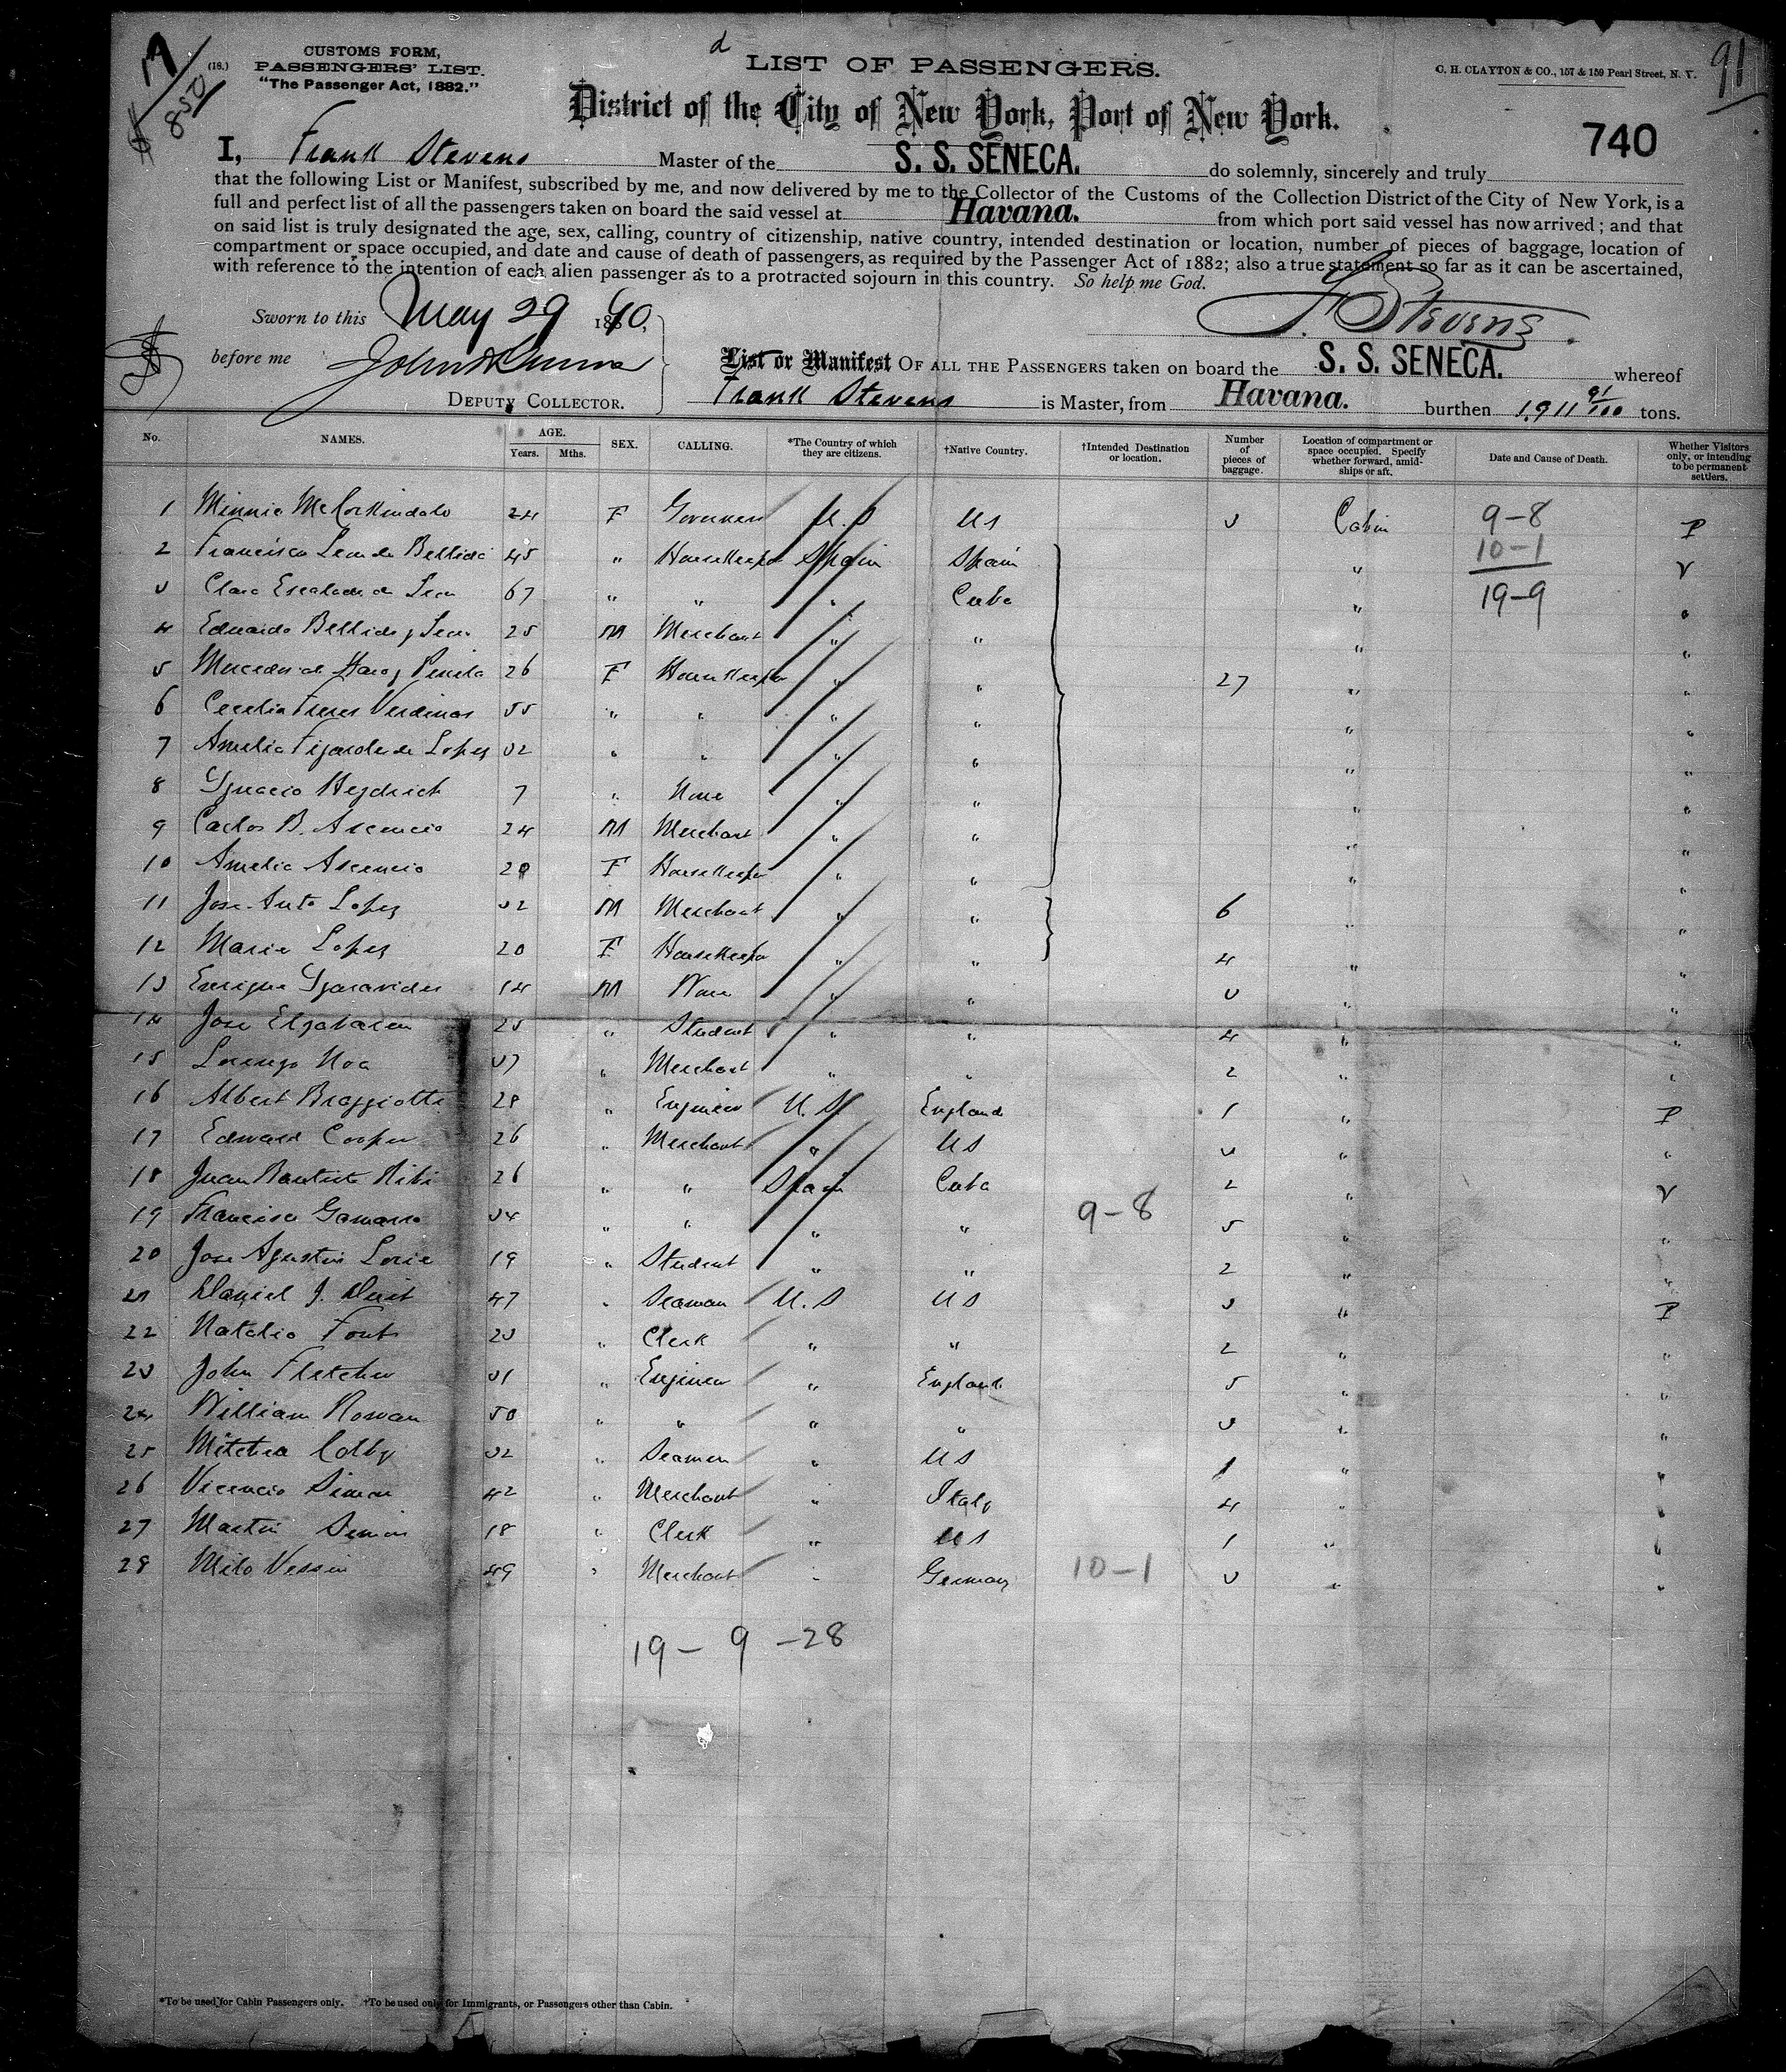 CUSTOMS FORM,
(18.) PASSENGERS' LIST.
"The Passenger Act, 1882."
850
d
LIST OF PASSENGERS.
C. H. CLAYTON & CO., 157 & 159 Pearl Street, N. Y.
91
District of the City of New York, Port of New York.
740
I, Frank Stevens Master of the S. S. SENECA. do solemnly, sincerely and truly
that the following List or Manifest, subscribed by me, and now delivered by me to the Collector of the Customs of the Collection District of the City of New York, is a
full and perfect list of all the passengers taken on board the said vessel at Havana. from which port said vessel has now arrived; and that
on said list is truly designated the age, sex, calling, country of citizenship, native country, intended destination or location, number of pieces of baggage, location of
compartment or space occupied, and date and cause of death of passengers, as required by the Passenger Act of 1882; also a true statement so far as it can be ascertained,
with reference to the intention of each alien passenger as to a protracted sojourn in this country. So help me God.
Sworn to this May 29 1890,
F. Stevens
before me
DEPUTY COLLECTOR.
List or Manifest OF ALL THE PASSENGERS taken on board the S. S. SENECA. whereof
Frank Stevens is Master, from Havana. burthen 1,911 91/100 tons.
No. NAMES. AGE. Years. Mths. SEX. CALLING. *The Country of which they are citizens. †Native Country. †Intended Destination or location. Number of pieces of baggage. Location of compartment or space occupied. Specify whether forward, amidships or aft. Date and Cause of Death. Whether Visitors only, or intending to be permanent settlers.
1 Minnie McCorkindale 24 F Governess U.S US 3 Cabin 9-8 P
2 Francisca Leon de Bellido 45 " Housekeeper Spain Spain " 10-1 V
3 Clara de Leon 67 " " " Cuba " 19-9 "
4 Eduardo Bellido y Leon 25 M Merchant " " " "
5 Mercedes de Haro y 26 F Housekeeper " " 27 " "
6 Cecilia 55 " " " " " "
7 Amelia de Lopez 32 " " " " " "
8 Ygnacio Heydrich 7 " None " " " "
9 Carlos B. Ascencio 24 M Merchant " " " "
10 Amelia Ascencio F Housekeeper " " " "
11 Jose Anto Lopez 32 M Merchant " " 6 " "
12 Maria Lopez 20 F Housekeeper " " 4 " "
13 Enrique 14 M None " " 3 " "
14 Jose " Student " " 4 " "
15 Lorenzo Noa 37 " Merchant " " 2 " "
16 Albert Braggiotti 28 " Engineer U.S. England 1 " P
17 Edward Cooper 26 " Merchant " US 3 " "
18 Juan Bautista 26 " " Spain Cuba 2 " V
19 Francisco Gamarra 34 " " " " 9-8 5 " "
20 Jose Agustin 19 " Student " " 2 " "
21 Daniel J. 47 " Seaman U.S US 3 " P
22 Natalio Font 23 " Clerk " " 2 " "
23 John Fletcher 31 " Engineer " England 5 " "
24 William Rowan 50 " " " " 3 " "
25 Colby 32 " Seaman " US 1 " "
26 Vicencio Simon 42 " Merchant " Italy 4 " "
27 Martin Simon 18 " Clerk " US 1 " "
28 Milo 49 " Merchant " Germany 10-1 3 " "
19 - 9 - 28
*To be used for Cabin Passengers only. †To be used only for Immigrants, or Passengers other than Cabin.